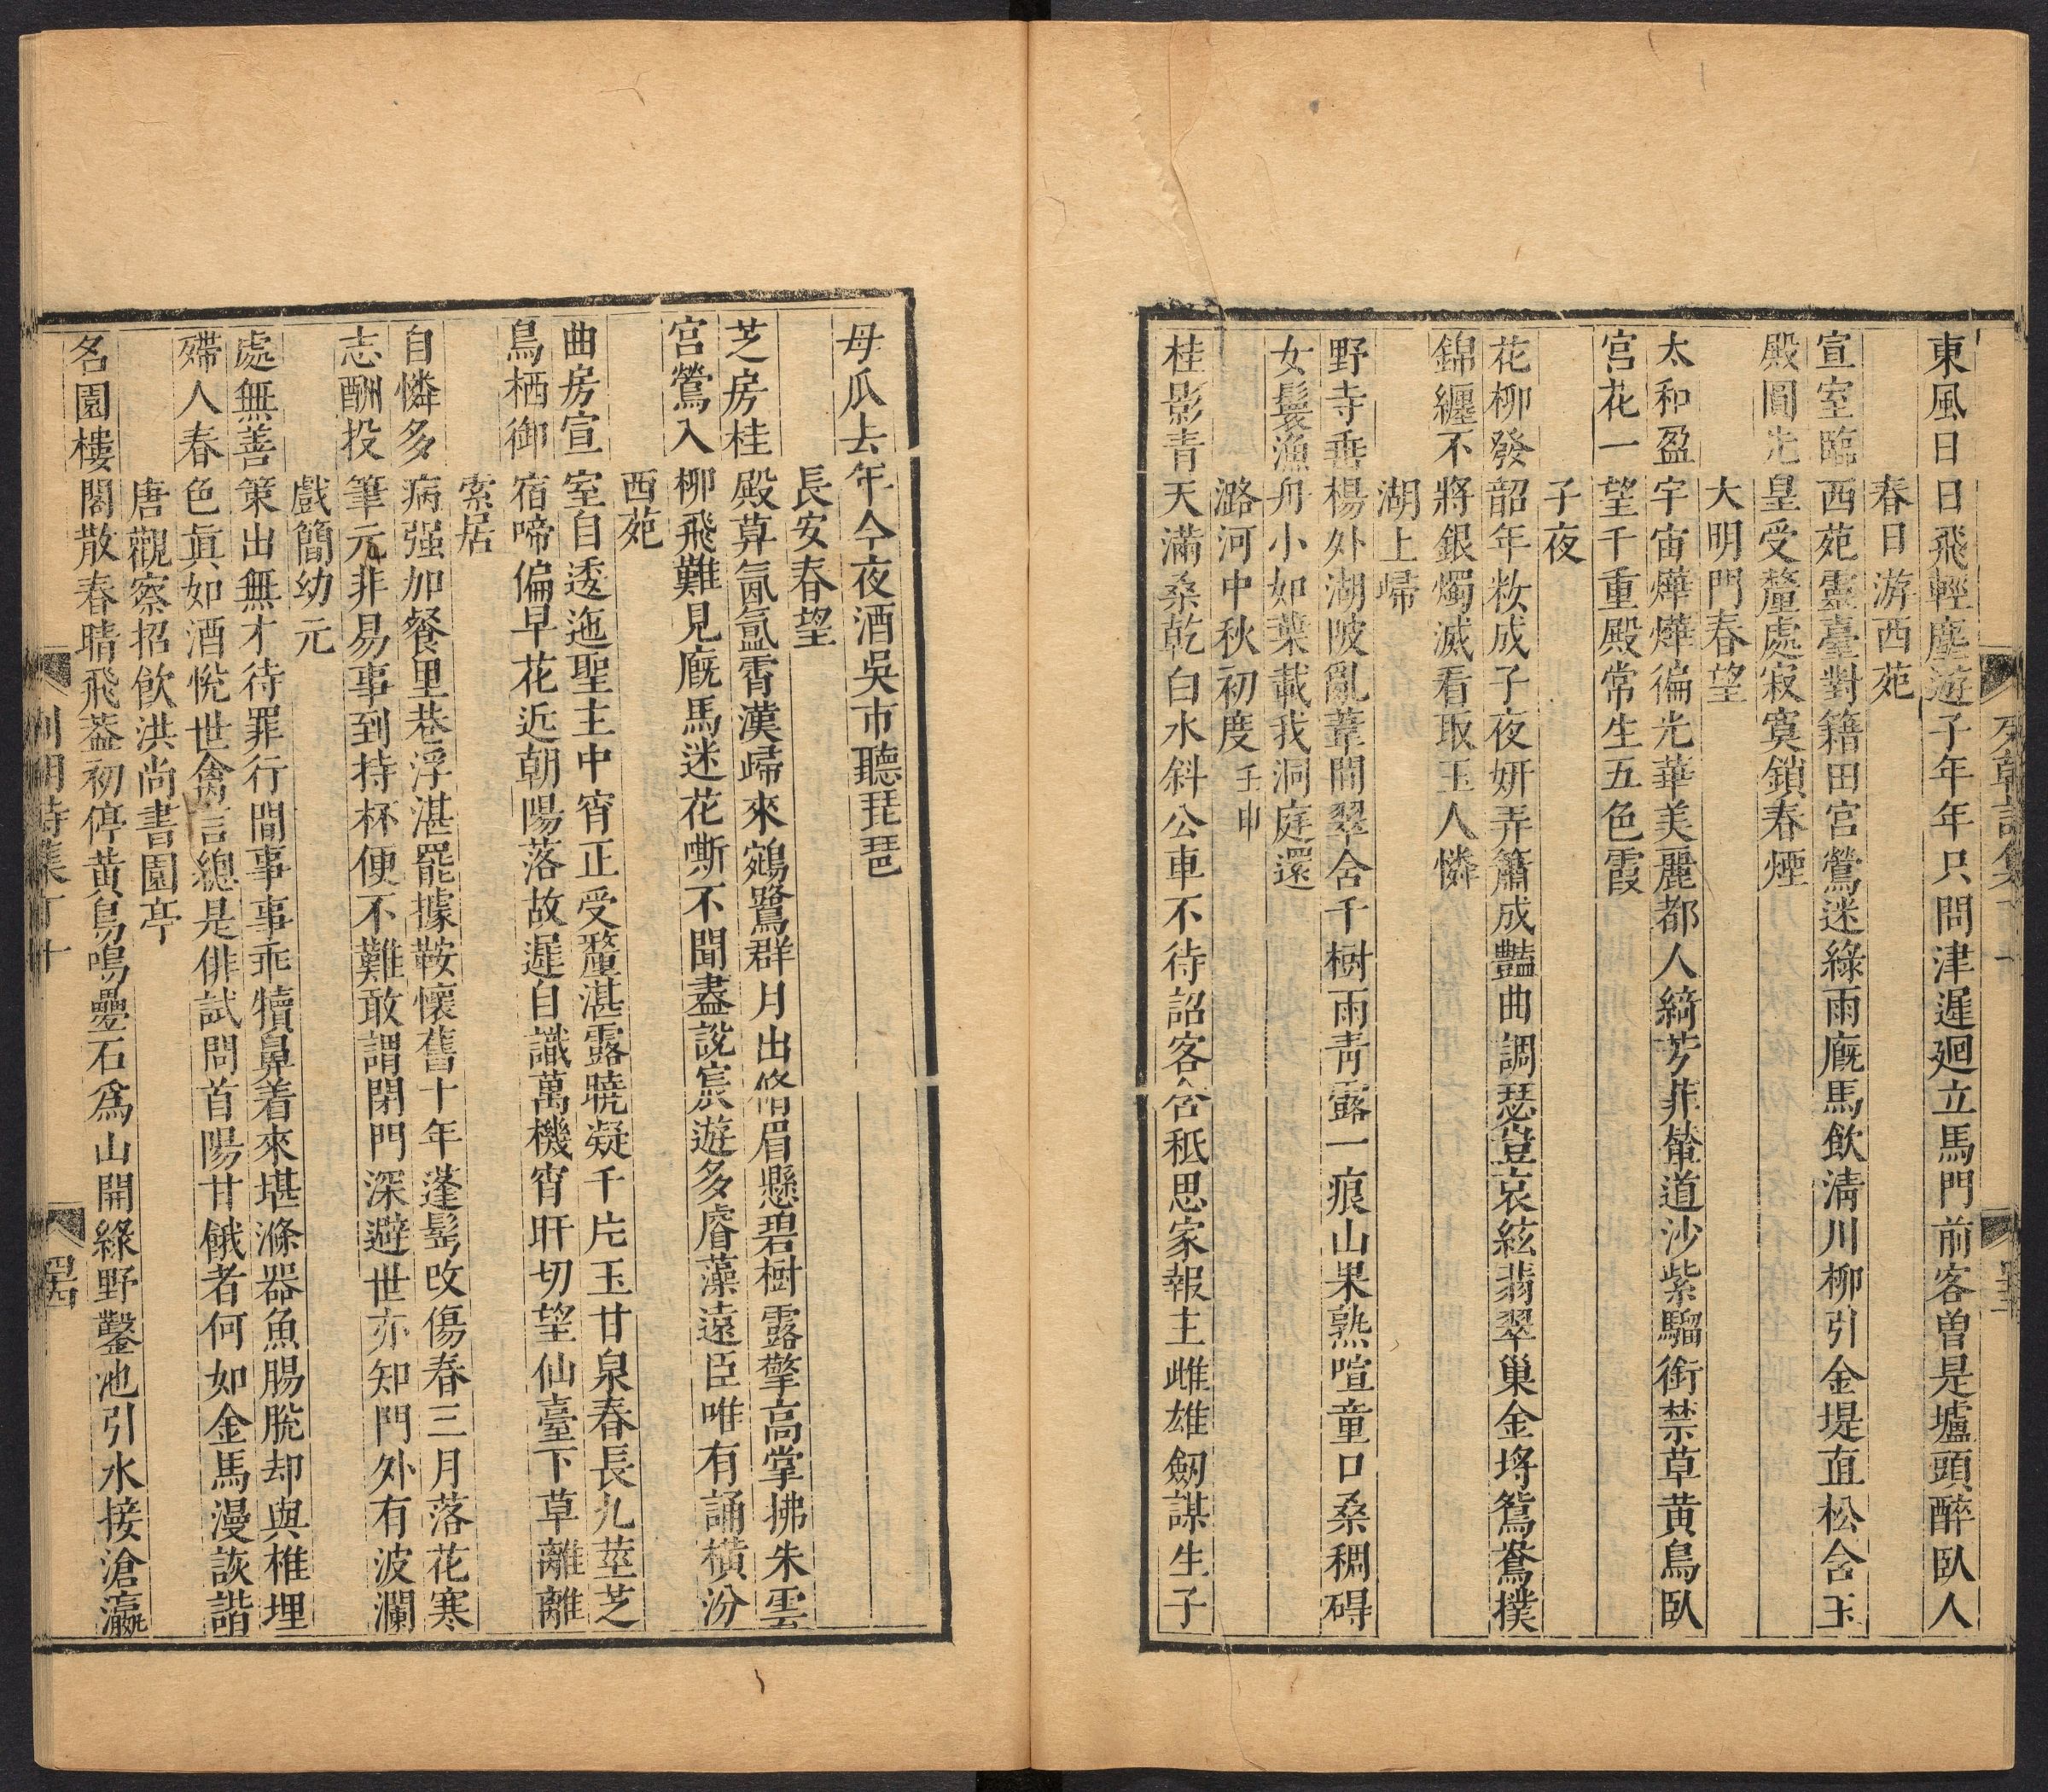 東風日日飛輕塵遊子年年只問津遲廻立馬門前客曽是壚頭醉臥人
春日游西苑
宣室臨西苑靈臺對籍田宮鶯迷綠雨廐馬飲淸川柳引金堤直松含玉
殿圓光皇受釐處寂寞鎖春煙
大明門春望
太和盈宇宙燁燁徧光華美麗都人綺芳菲輦道沙紫騮銜禁草黄鳥臥
宮花一望千重殿常生五色霞
子夜
花柳發韶年妝成子夜妍弄簫成豔曲調瑟豈哀絃翡翠巢金埓鴛鴦撲
錦纏不將銀燭滅看取玉人憐
湖上歸
野寺垂楊外湖陂亂葦間翠含千樹雨靑露一痕山果熟喧童口桑稠碍
女鬟漁舟小如葉載我洞庭還
潞河中秋初度壬申
桂影青天滿桑乾白水斜公車不待詔客舍秪思家報主雌雄劒謀生子
母瓜去年今夜酒吳市聽琵琶
長安春望
芝房桂殿葬氤氳霄漢歸來鵷鷺群月出脩眉懸碧樹露擎高掌拂朱雲
宮鶯入柳飛難見廐馬迷花嘶不聞盡說宸遊多睿藻遠臣唯有誦橫汾
西苑
曲房宣室自逶迤聖主中宵正受釐湛露曉凝千片玉甘泉春長九莖芝
鳥栖御宿啼偏早花近朝陽落故遲自識萬機宵旰切望仙臺下草離離
索居
自憐多病强加餐里巷浮湛罷據鞍懷舊十年蓬髩改傷春三月落花寒
志酬投筆元非易事到持杯便不難敢謂閉門深避世亦知門外有波瀾
戲簡幼元
處無善策出無才待罪行間事事乖犢鼻着來堪滌器魚腸脫却與椎埋
殢人春色眞如酒悅世禽言總是俳試問首陽甘餓者何如金馬漫詼諧
唐觀察招飲洪尚書園亭
名園樓閣散春晴飛葢初停黄鳥鳴疊石爲山開綠野鑿池引水接滄瀛
列朝詩集丁十
四十四